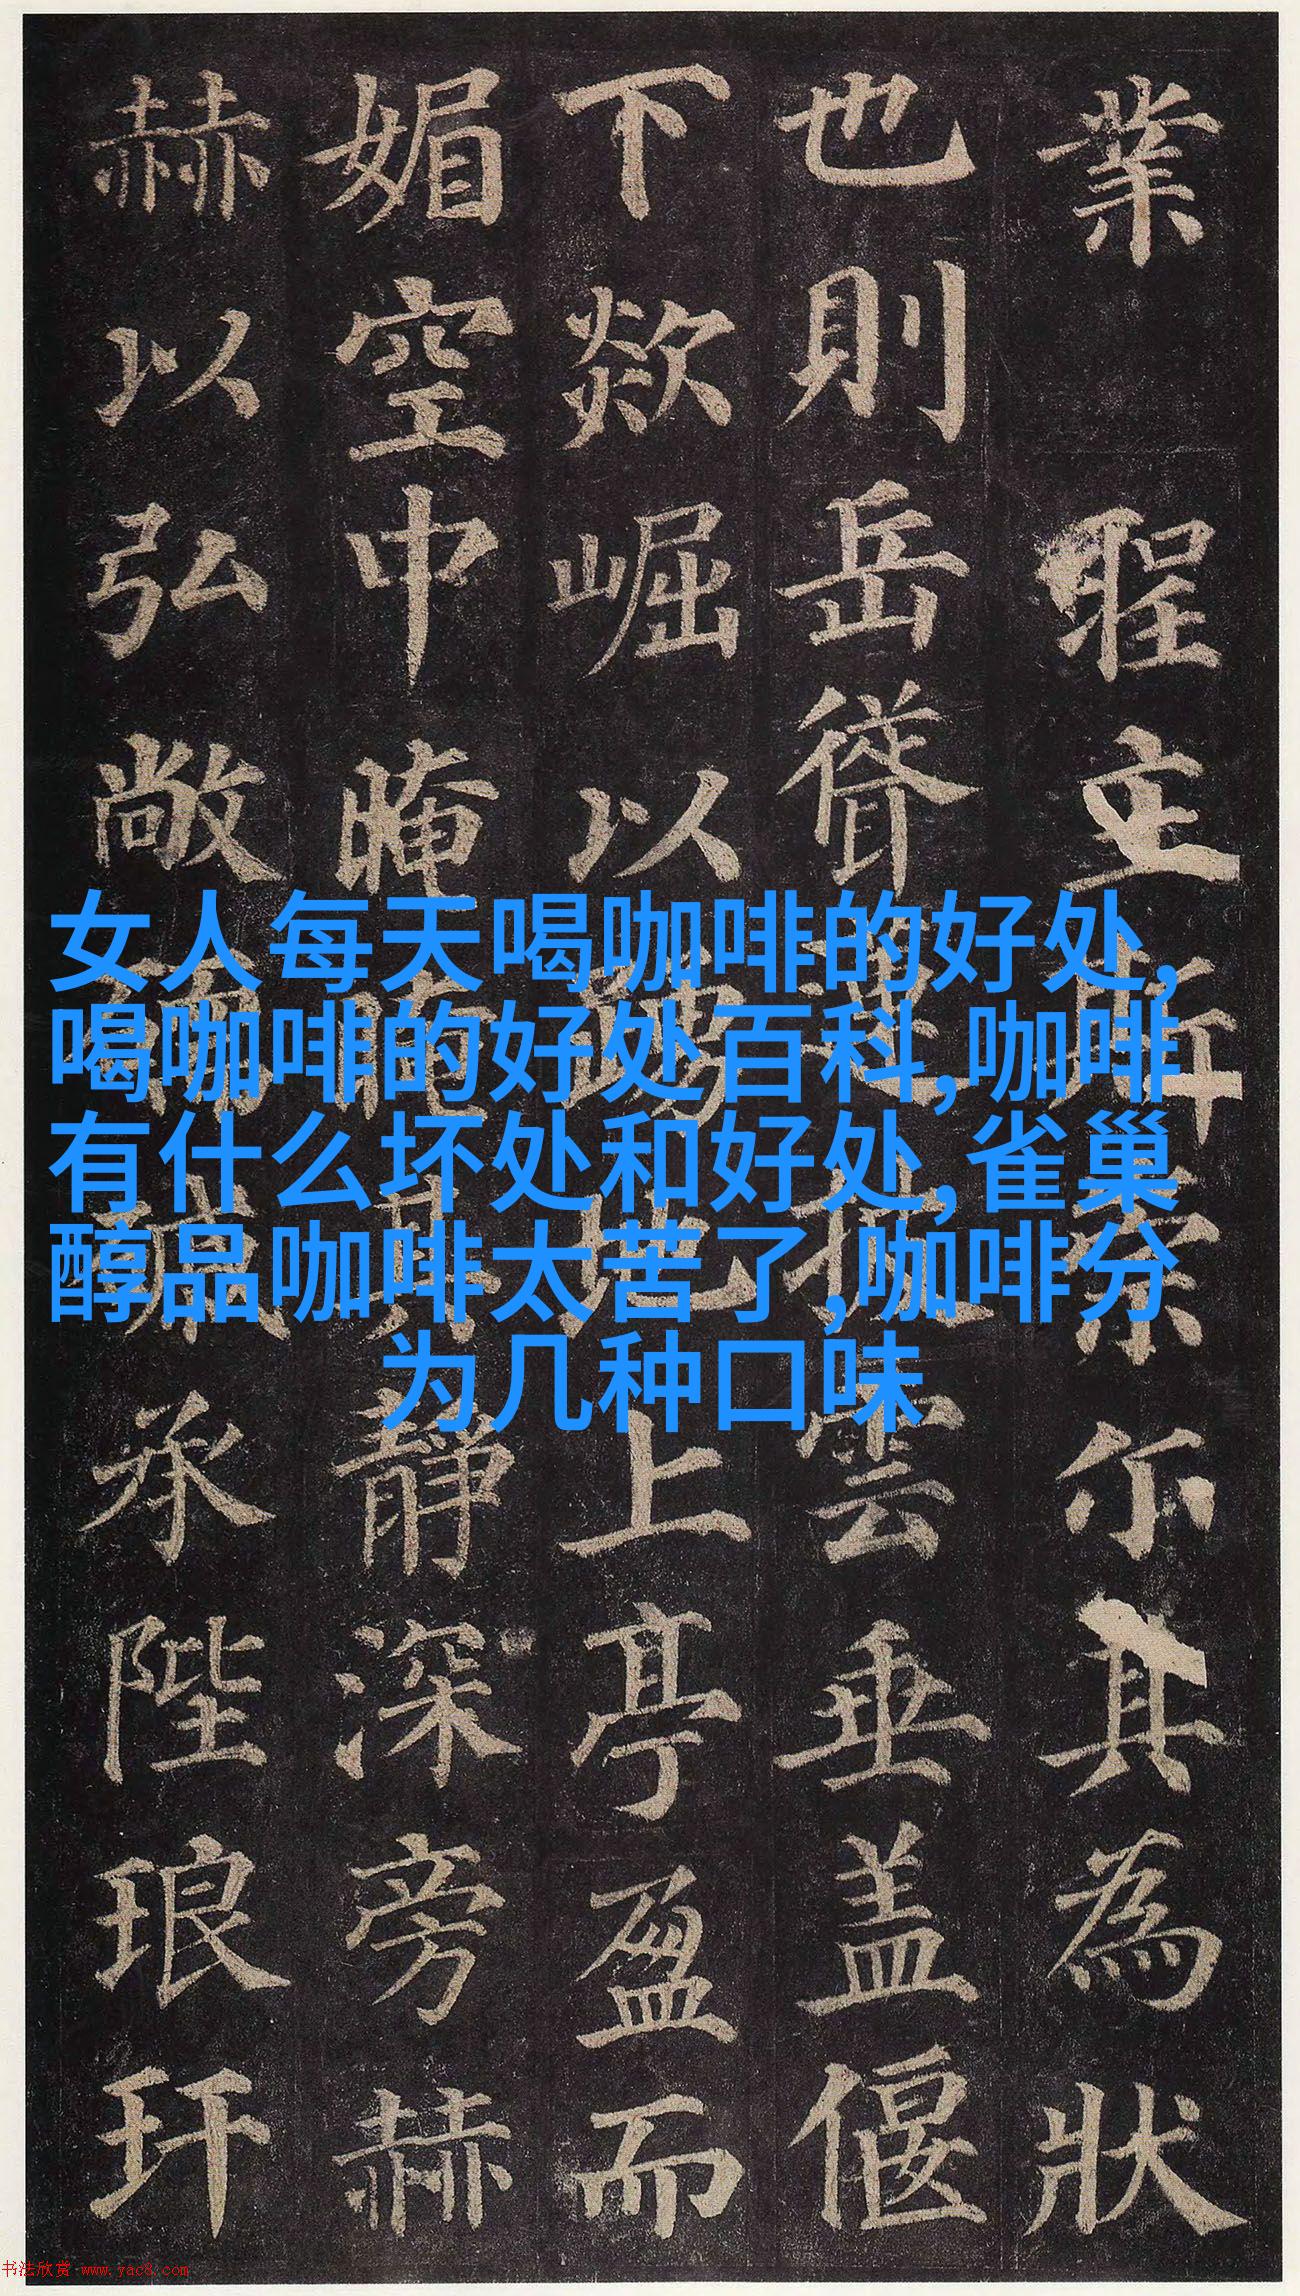 業聖立斯崇尔其為狀
也則岳聳蓮披雲垂盖偃
下欻崛以踴地上亭盈而
媚空中晻晻其静深旁赫
赫以弘敞礝碱承陛琅玕
女人每天喝咖啡的好处,
喝咖啡的好处百科,咖啡
有什么坏处和好处,雀巢
醇品咖啡太苦了,咖啡分
为几种口味
书法欣赏 www.yac8.com